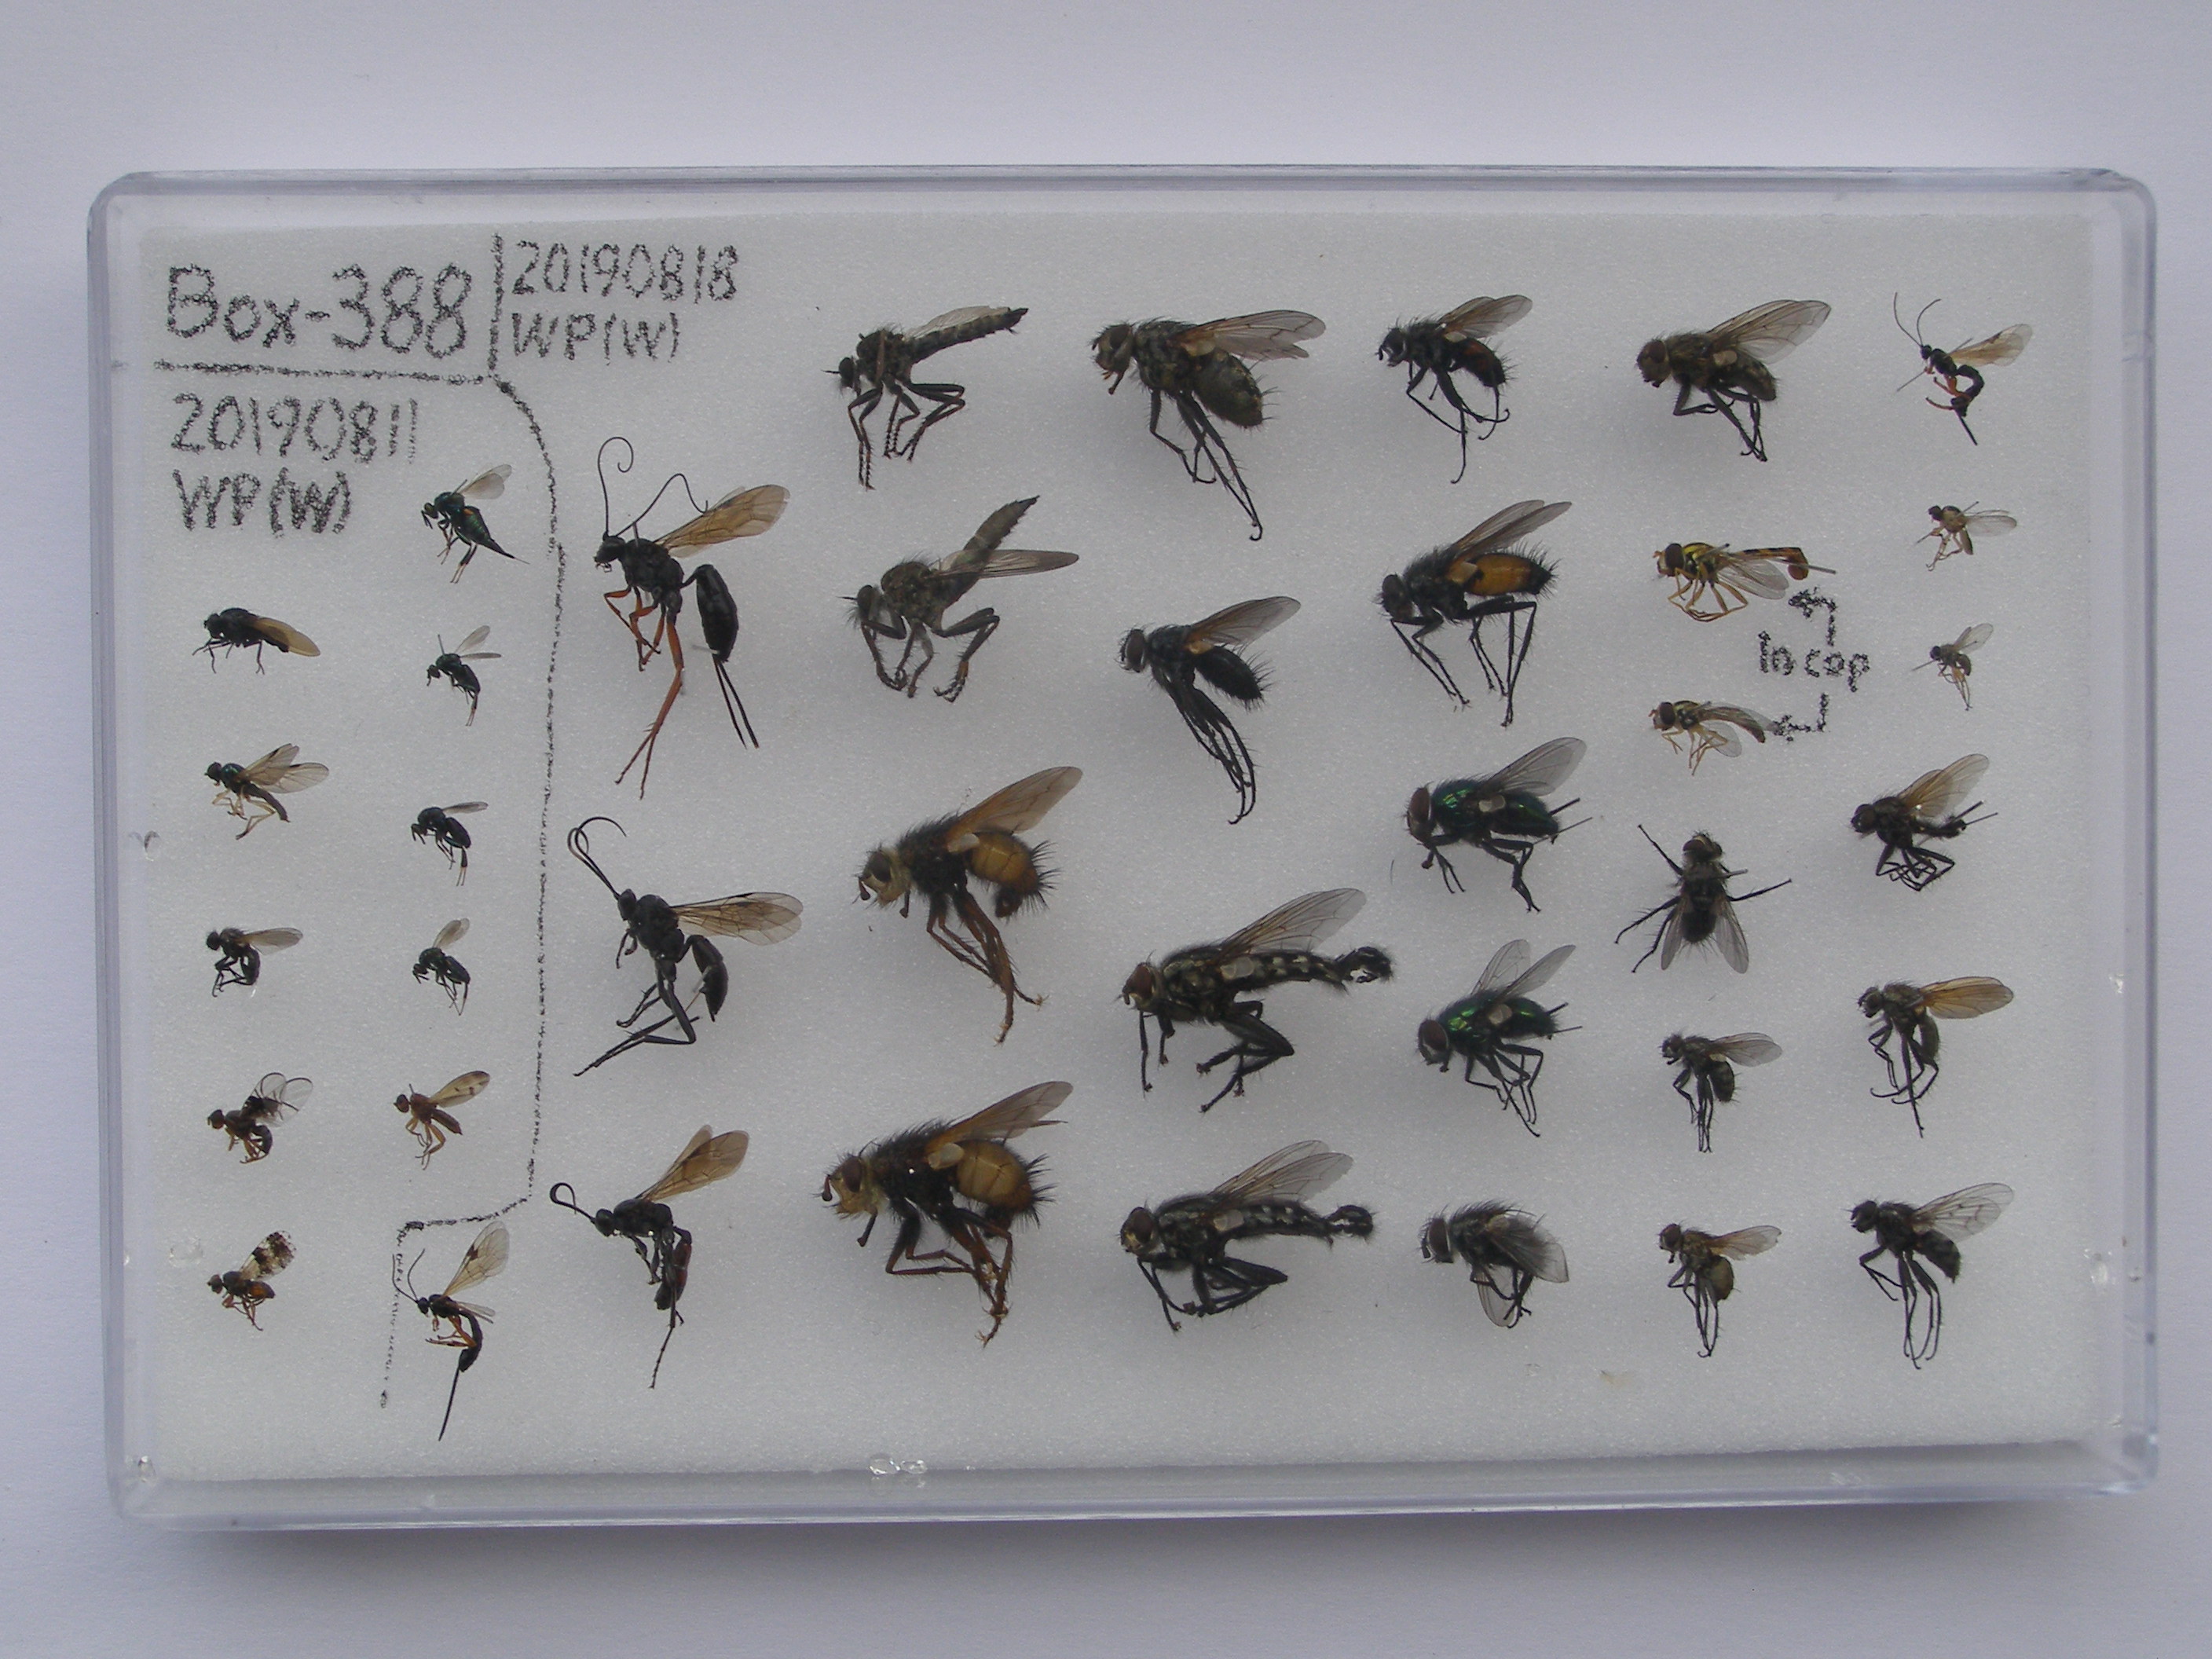 Box-388
20190818
WP(W)
20190811
WP(W)
In cop